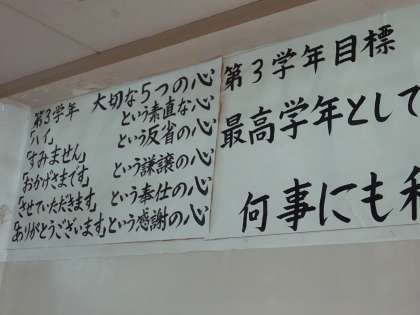 第3学年 大切な5つの心
「ハイ」という素直な心
「すみません」という反省の心
「おかげさまです」という謙譲の心
「させていただきます」という奉仕の心
「ありがとうございます」という感謝の心
第3学年目標
最高学年として
何事にも